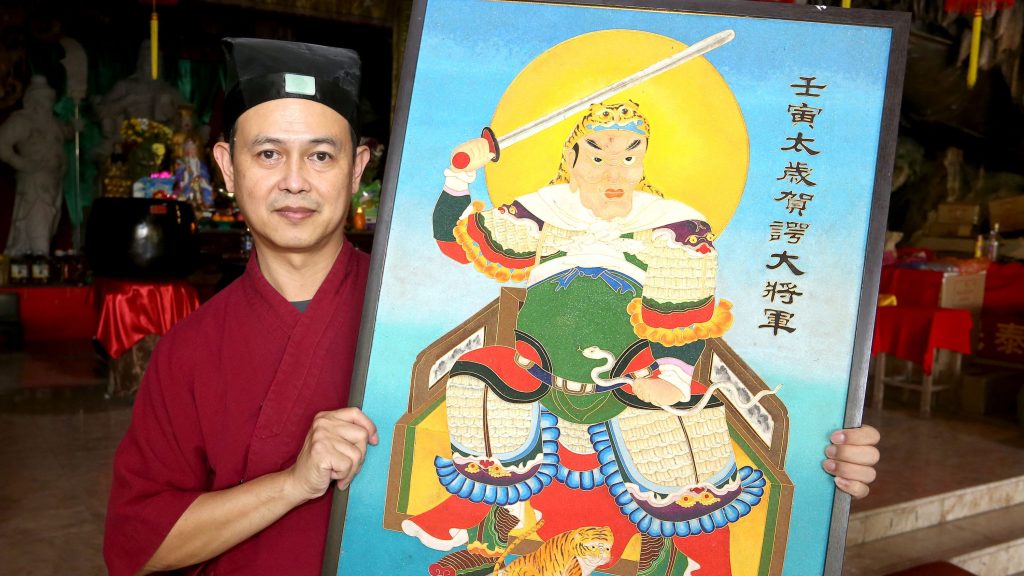 壬寅太歲賀諤大將軍
泰